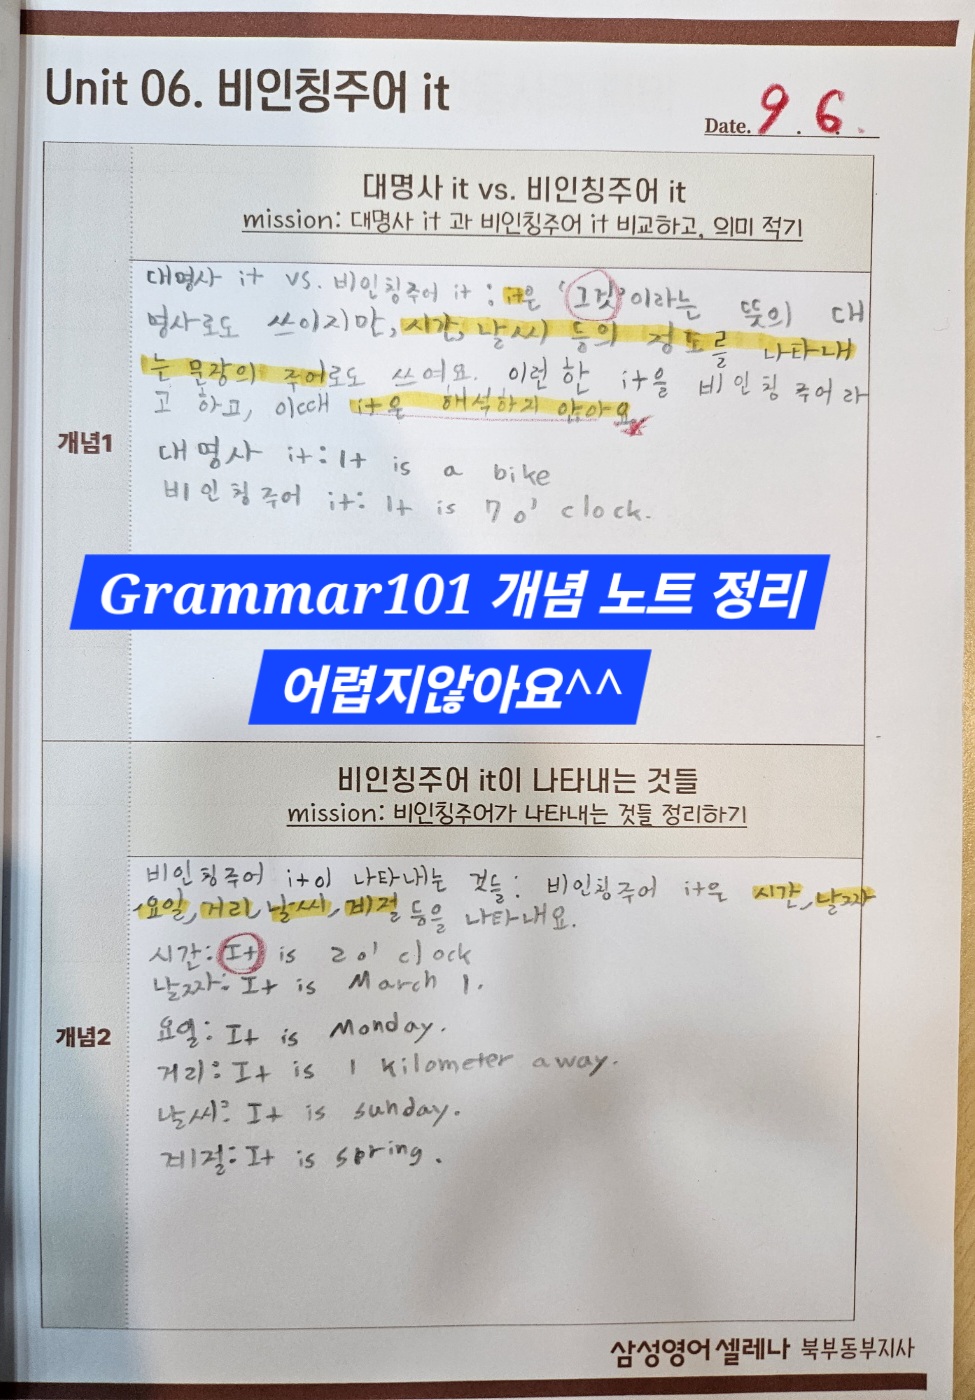 Unit 06. 비인칭주어 it
Date. 9. 6.
대명사 it vs. 비인칭주어 it
mission: 대명사 it 과 비인칭주어 it 비교하고, 의미 적기
개념1
대명사 it vs. 비인칭주어 it : it은 '그것'이라는 뜻의 대
명사로도 쓰이지만, 시간, 날씨 등의 정도를 나타내
는 문장의 주어로도 쓰여요. 이런한 it을 비인칭주어라
고 하고, 이때 it은 해석하지 않아요
대명사 it: It is a bike
비인칭주어 it: It is 7 o'clock.
Grammar101 개념 노트 정리
어렵지않아요^^
비인칭주어 it이 나타내는 것들
mission: 비인칭주어가 나타내는 것들 정리하기
개념2
비인칭주어 it이 나타내는 것들: 비인칭주어 it은 시간, 날짜
요일, 거리, 날씨, 계절 등을 나타내요.
시간: It is 2 o'clock
날짜: It is March 1.
요일: It is Monday.
거리: It is 1 kilometer away.
날씨: It is sunday.
계절: It is spring.
삼성영어 셀레나 북부동부지사